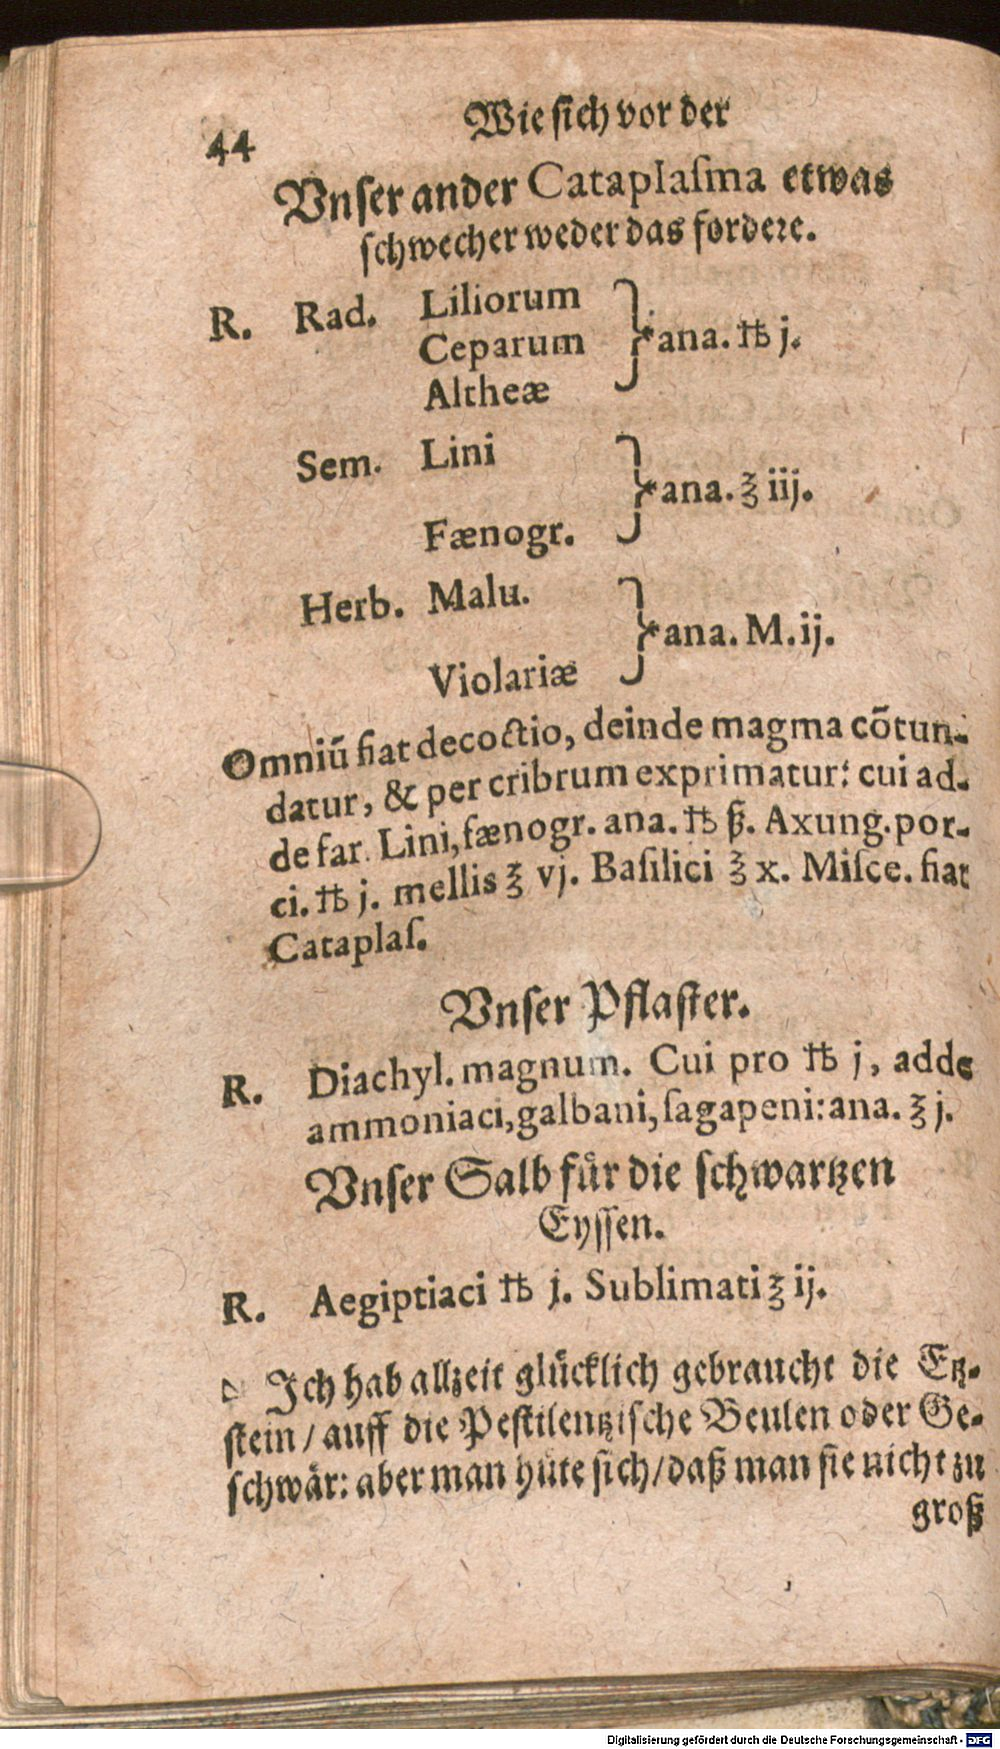 44
Wie ſich vor der
Vnſer ander Cataplaſma etwas
ſchwecher weder das fordere.
R. Rad. Liliorum
Ceparum
Altheæ
ana. ℔ j.
Sem. Lini
Fænogr.
ana. ℥ iij.
Herb. Malu.
Violariæ
ana. M. ij.
Omniū fiat decoctio, deinde magma cōtun-
datur, & per cribrum exprimatur: cui ad-
de far. Lini, fænogr. ana. ℔ ß. Axung. por-
ci. ℔ j. mellis ℥ vj. Baſilici ℥ x. Miſce. fiat
Cataplaſ.
Vnſer Pflaſter.
R. Diachyl. magnum. Cui pro ℔ j, adde
ammoniaci, galbani, ſagapeni: ana. ℥ j.
Vnſer Salb für die ſchwartzen
Eyſſen.
R. Aegiptiaci ℔ j. Sublimati ℥ ij.
Ich hab allzeit glücklich gebraucht die Etz-
ſtein / auff die Peſtilentziſche Beulen oder Ge-
ſchwär: aber man hüte ſich / daß man ſie nicht zu
groß
Digitalisierung gefördert durch die Deutsche Forschungsgemeinschaft - DFG